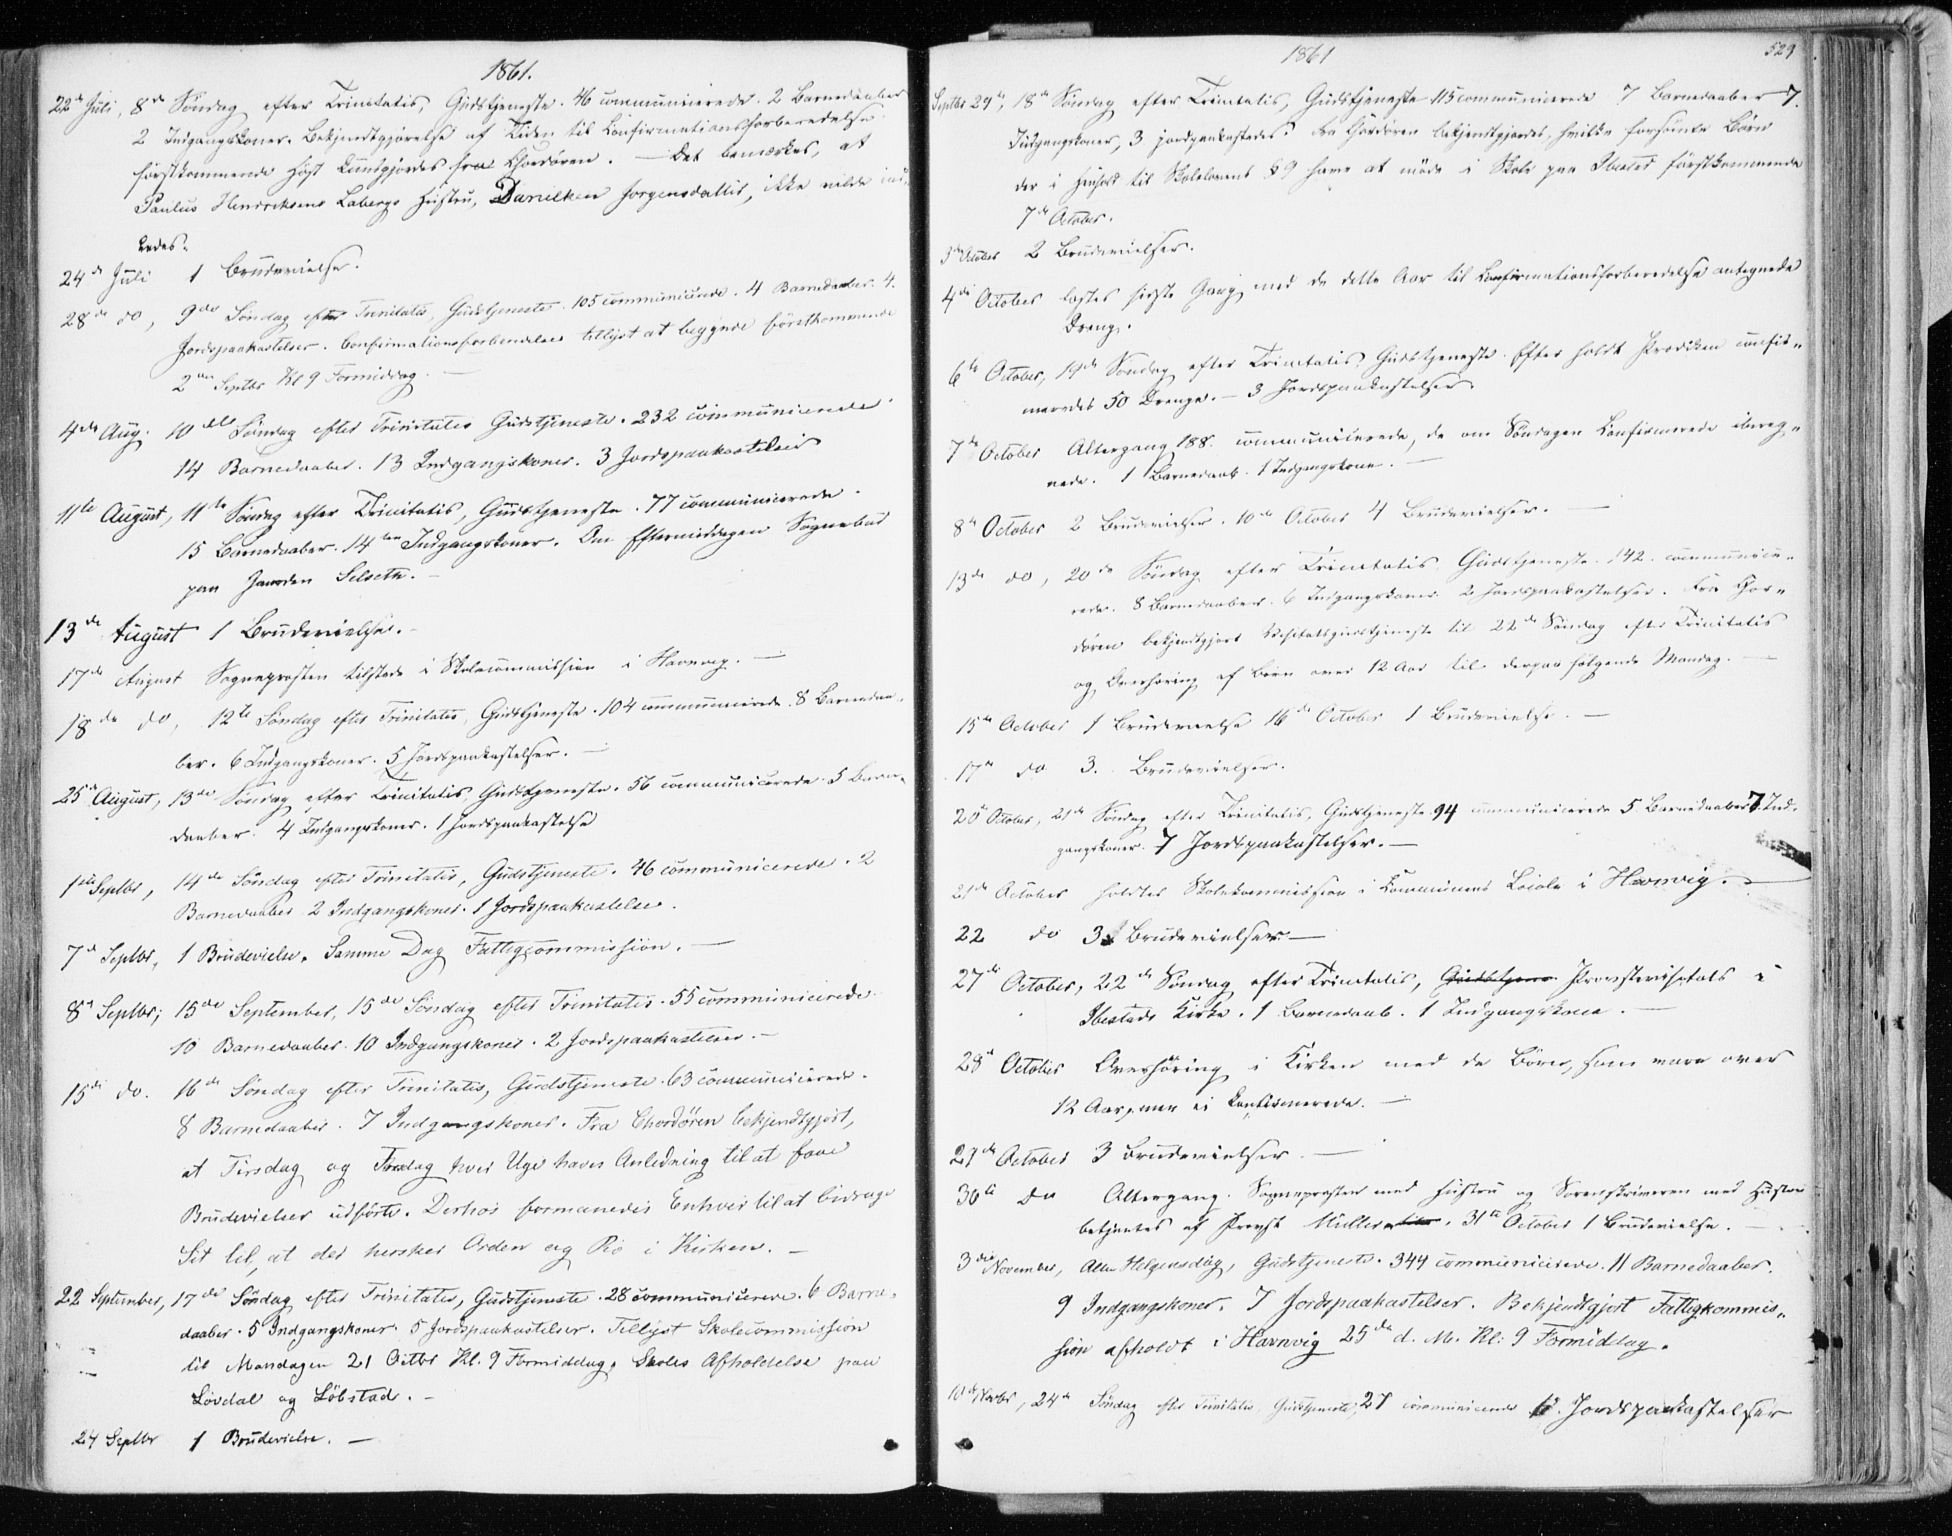 1861.
22de Juli, 8de Söndag efter Trinitatis, Gudstjeneste. 46 communicerede. 2 Barnedaaber
2 Indgangskoner. Bekjendtgjørelse af Tiden til Confirmationsforberedelse
førstkommende Høst kundgjordes fra Chordøren. — Det bemærkes, at
Paulus Hendriksens Labergs Hustru, Danilken Jorgensdatter, ikke vilde ind-
ledes.
24de Juli 1 Brudevielse.
28de do, 9de Söndag efter Trinitatis, Gudstjeneste. 105 communicerede. 4 Barnedaaber. 4.
Jordspaakastelser. Confirmationsforberedelsen tillyst at begynde førstkommende
2den Septbr Kl 9 Formiddag. —
4de Aug. 10de Söndag efter Trinitatis Gudstjeneste. 232 communicerede.
14 Barnedaaber. 13 Indgangskoner. 3 Jordspaakastelser
11te August, 11te Söndag efter Trinitatis, Gudstjeneste. 77 communicerede.
15 Barnedaaber. 14 Indgangskoner. Om Eftermiddagen Sognebud
paa Gaarden Selseth. —
13de August 1 Brudevielse. —
17de August Sogneprosten tilstede i Skolecommission i Havnvig. —
18de do, 12te Söndag efter Trinitatis, Gudstjeneste. 104 communicerede. 8 Barnedaa-
ber. 6 Indgangskoner. 5 Jordspaakastelser. —
25de August, 13de Söndag efter Trinitatis, Gudstjeneste. 56 communicerede. 5 Barne-
daaber. 4 Indgangskoner. 1 Jordspaakastelse
1ste Septbr, 14de Söndag efter Trinitatis, Gudstjeneste. 46 communicerede. 2
Barnedaaber 2 Indgangskoner. 1 Jordspaakastelse.
7de Septbr, 1 Brudevielse. Samme Dag Fattigcommission. —
8de Septbr; 15de September, 15de Söndag efter Trinitatis. 55 communicerede.
10 Barnedaaber. 10 Indgangskoner. 2 Jordspaakastelser. —
15de do. 16de Söndag efter Trinitatis, Gudstjeneste. 63 communicerede.
8 Barnedaaber. 7 Indgangskoner. Fra Chordören bekjendtgjort,
at Tirsdag og Fredag hver Uge haves Anledning til at faae
Brudevielser udförte. Derhos formanedes Enhver til at bidrage
Sit til, at der hersker Orden og Ro i Kirken. —
22 September, 17de Söndag efter Trinitatis, Gudstjeneste. 28 communicerede. 6 Barne-
daaber. 5 Indgangskoner. 5 Jordspaakastelser. Tillyst Skolecommission
til Mandagen 21 Octbr Kl. 9 Formiddag, Skoles Afholdelse paa
Løvdal og Löbstad. —
24 Septbr 1 Brudevielse. —
1861
529
Septbr 29de, 18de Söndag efter Trinitatis, Gudstjeneste 115 communicerede 7 Barnedaaber 7.
Indgangskoner, 3 jordpaakastedes. Fra Chordören bekjendtgjordes, hvilke forsömte Börn
der i Henhold til Skolelovens § 9 have at möde i Skole paa Ibested förstkommende
7de October.
3die October 2 Brudevielser.
4de October læstes sidste Gang med de dette Aar til Confirmationsforberedelse antegnede
Drenge.
6te October, 19de Söndag efter Trinitatis, Gudstjeneste. Efter holdt Prædiken confir-
meredes 50 Drenge. — 3 Jordspaakastelser
7de October Altergang 188. communicerede, de om Söndagen Confirmerede ibereg-
nede. 1 Barnedaab. 1 Indgangskone. —
8de October 2 Brudevielser. 10de October 4 Brudevielser. —
13de do, 20de Söndag efter Trinitatis Gudstjeneste. 142. communice-
rede. 8 Barnedaaber. 6 Indgangskoner. 2 Jordspaakastelser. Fra Chor-
dören bekjendtgjort Visitatsgudstjeneste til 22de Söndag efter Trinitatis
og Overhøring af Börn over 12 Aar til derpaa følgende Mandag. —
15de October 1 Brudevielse 16de October 1 Brudevielse. —
17de do 3. Brudevielser.
20de October, 21de Söndag efter Trinitatis, Gudstjeneste. 94 communicerede 5 Barnedaaber 7. Ind-
gangskoner. 7 Jordspaakastelser. —
21de October holdtes Skolekommission i Kommunens Locale i Havnvig. —
22 do 3 Brudevielser —
27de October, 22de Söndag efter Trinitatis, Gudstjene Provstevisitats i
Ibestads Kirke. 1 Barnedaab. 1 Indgangskone. —
28de October Overhöring i Kirken med de Börn, som vare over
12 Aar, men ei konfirmerede. —
29de October 3 Brudevielser. —
30te do Altergang. Sogneprosten med Hustru og Sorenskriveren med Hustru
betjentes af Provst Müller. 31te October 1 Brudevielse. —
3die November, Alle Helgensdag, Gudstjeneste. 344 communicerede. 11 Barnedaaber.
9 Indgangskoner. 7 Jordspaakastelser. Bekjendtgjort Fattigkommis-
sion afholdt i Havnvig 25de d. M. Kl: 9 Formiddag.
10de Novbr, 24de Söndag efter Trinitatis, Gudstjeneste, 27 communicerede Jordspaakastelser